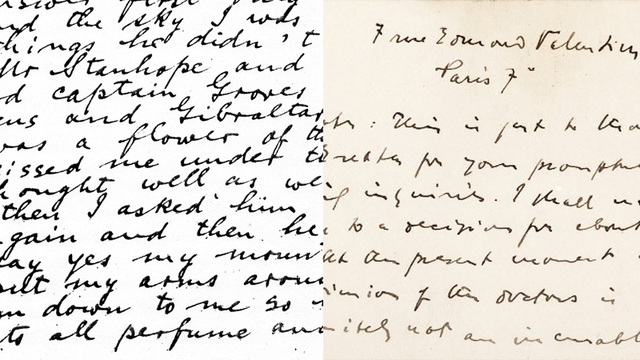 nd the sky I was
things he didn't
Mr Stanhope and
d captain Groves
eus and Gibraltar
was a flower of th
issed me under t
hought well as we
then I asked him
gain and then he
ay yes my moun
put my arms aroun
m down to me so
to all perfume and
7 rue Edmond Valentin
Paris 7e
: This is just to tha
for your prompt
g inquiries. I shall
to a decision for about
at the present moment
inion of the doctors is
isely not an incurabl